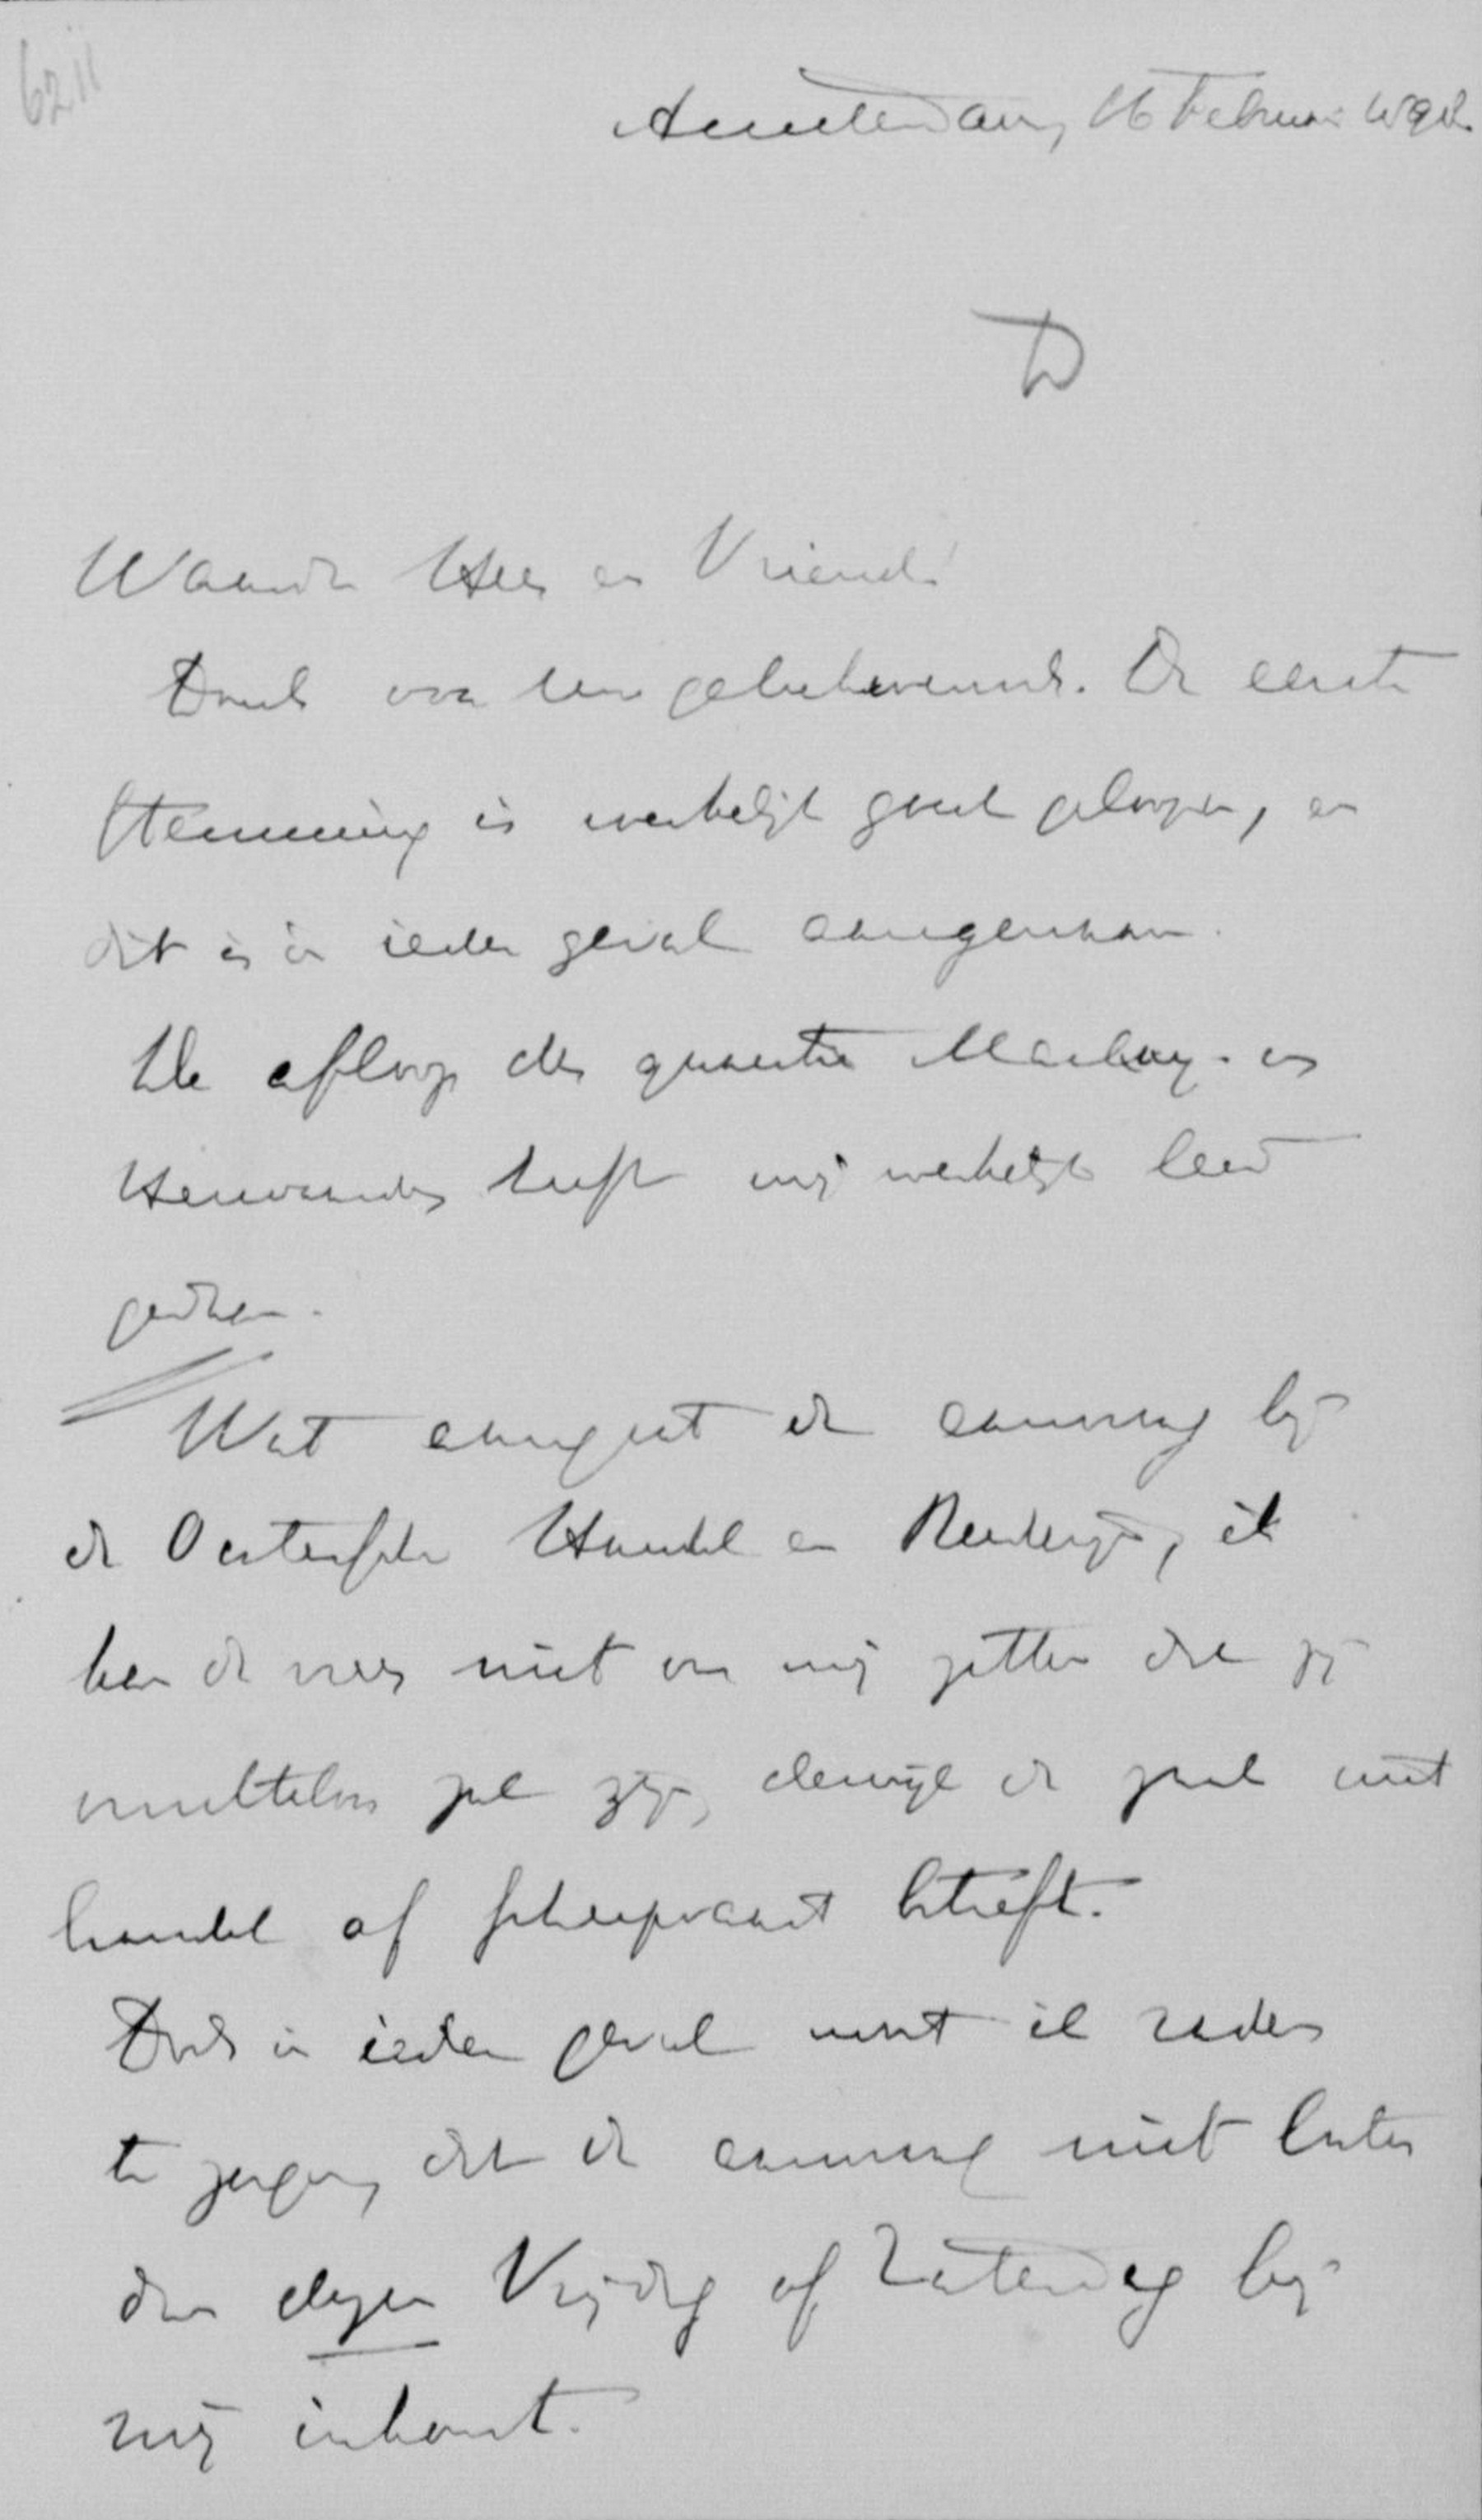 6211
Amsterdam, 16 Februari
D
Waarde Heer en Vriend!
Dank voor uw gelukwensch. De eerste
stemming is werkelijk goed geloopen, en
dit is in ieder geval aangenaam.
De afloop der quaestie Mackay- en
heeft mij werkelijk leed
gedaan.
Wat aangaat de aanvraag bij
de Oostersche Handel en Reederij, ik
kan de vrees niet van mij zetten dat zij
vruchteloos zal zijn, dewijl de zaak niet
handel of scheepvaart betreft.
Doch in ieder geval moet ik zeker
te zeggen, dat de aanvraag niet later
dan dezen Vrijdag of Zaterdag bij
mij inkomt.